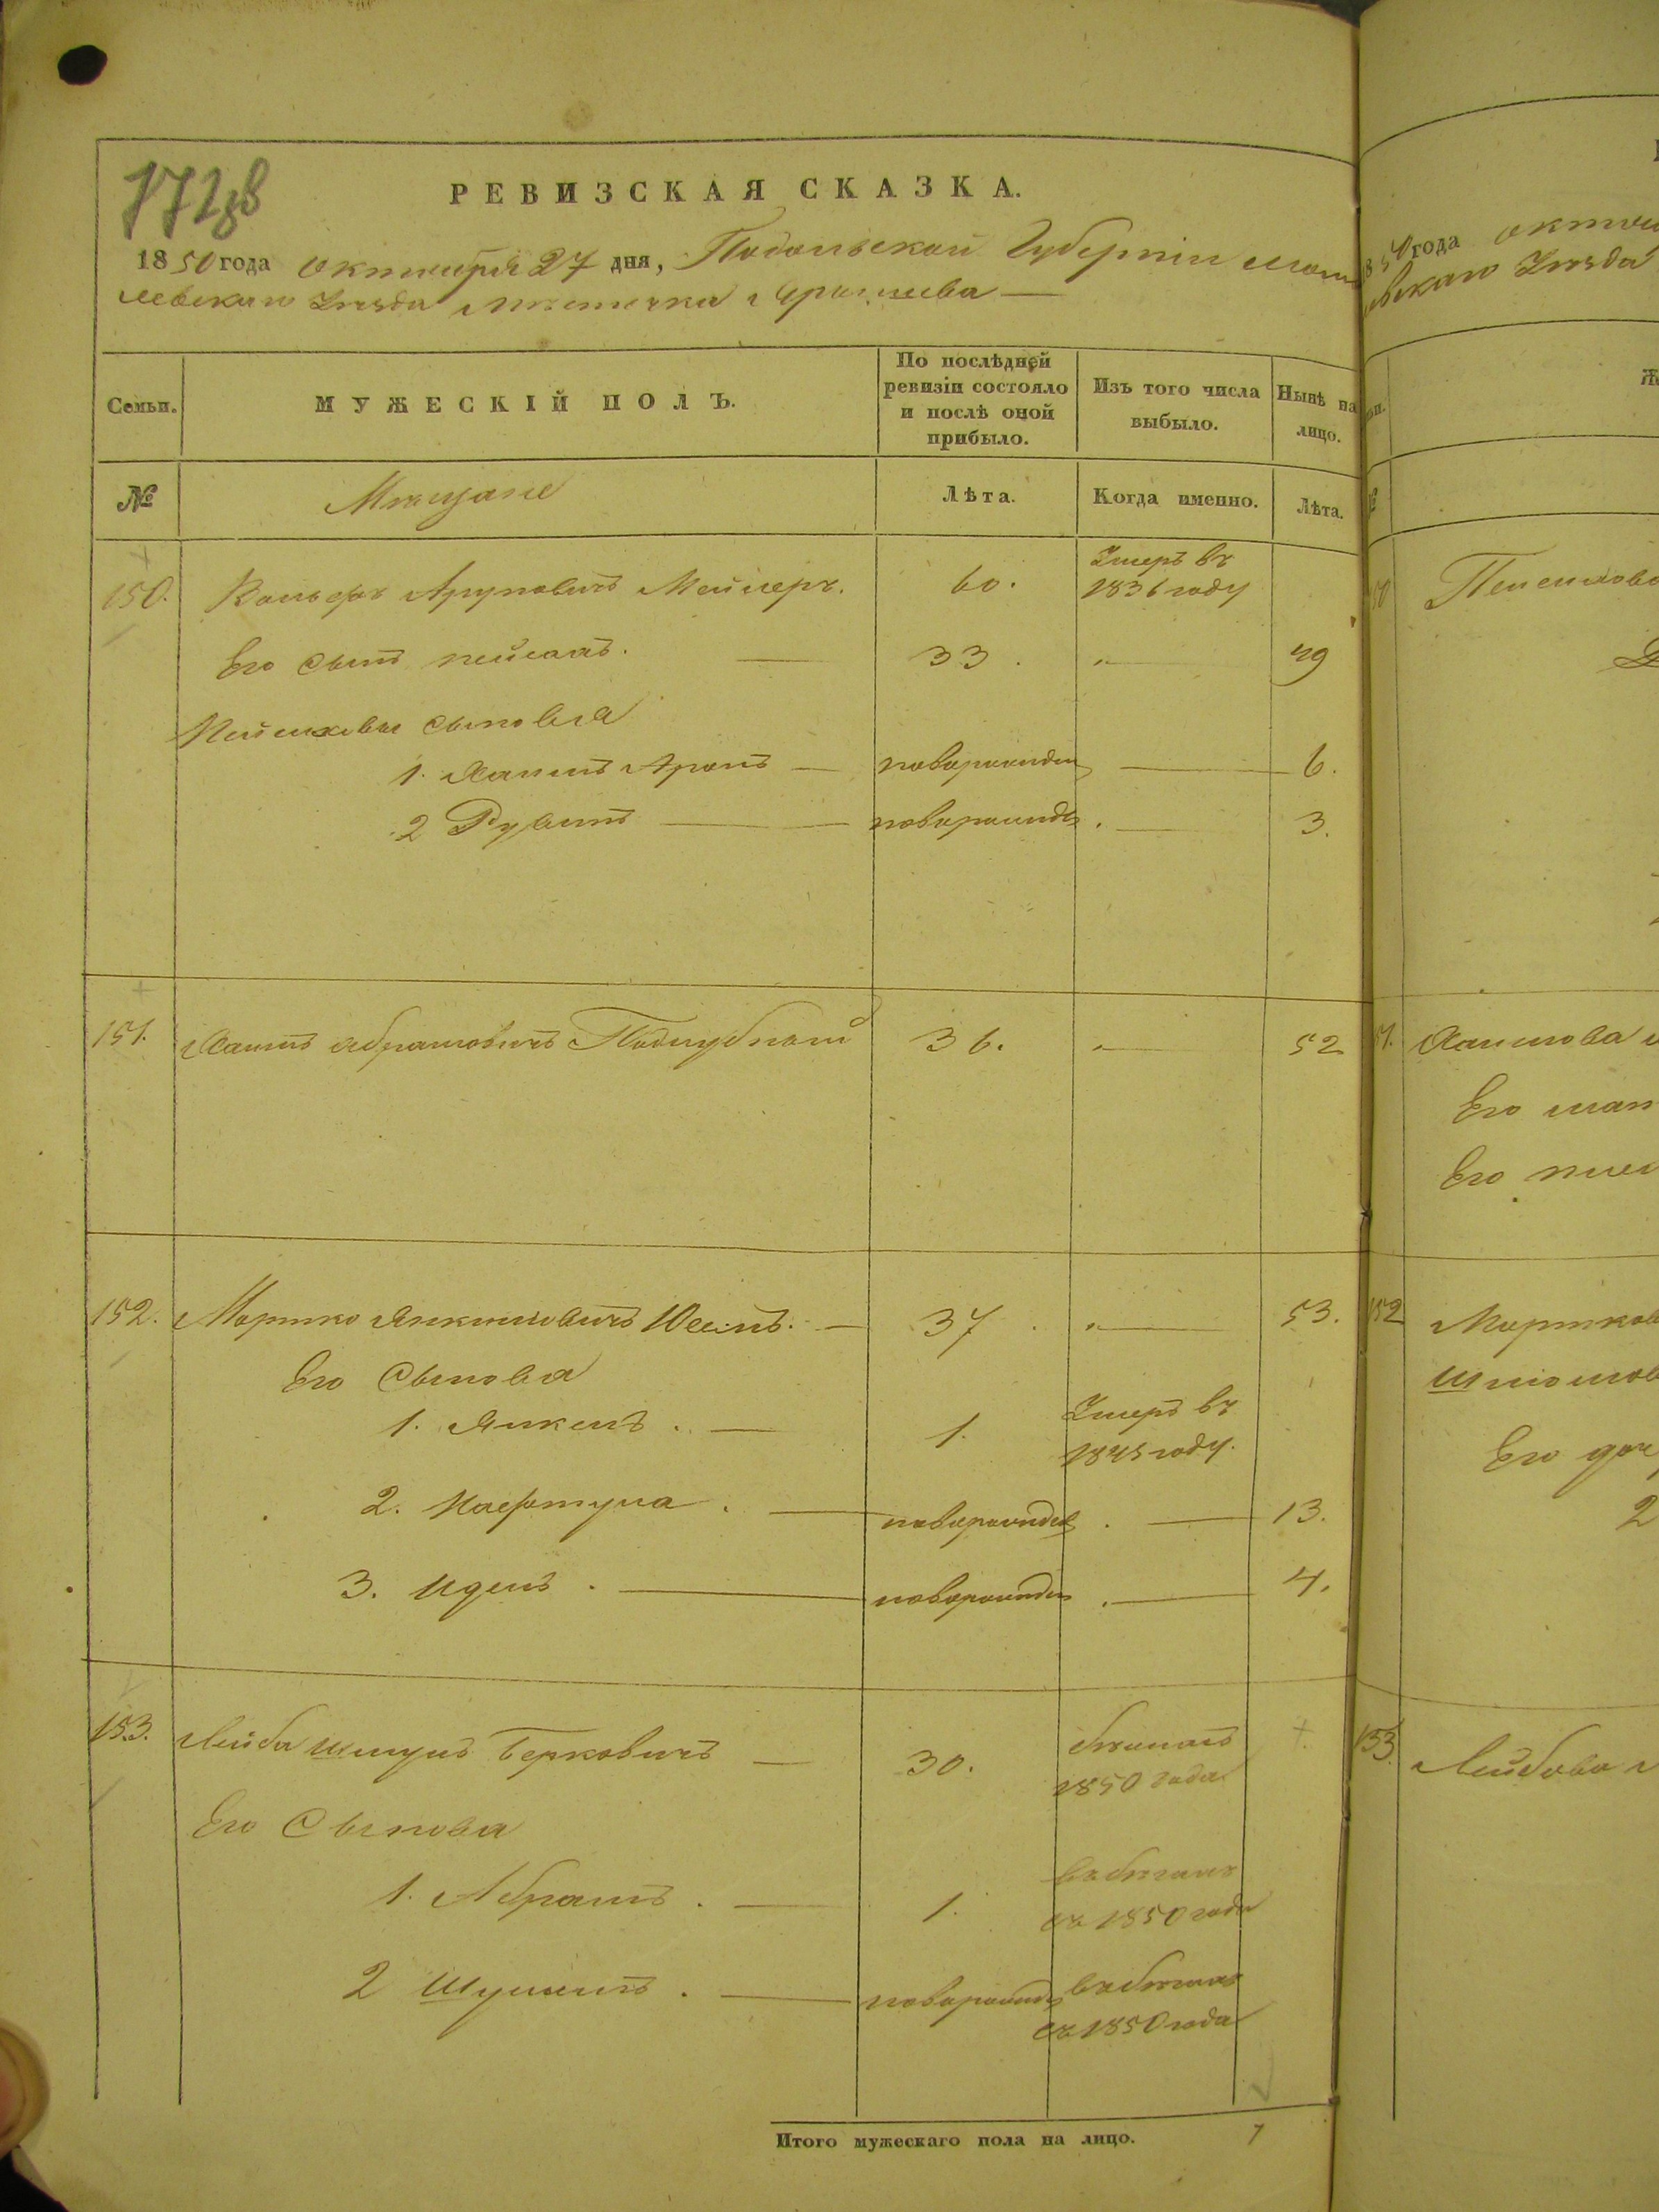 172 об
РЕВИЗСКАЯ СКАЗКА.
1850 года октября 27 дня, Подольской Губерніи Моги
левскаго Уѣзда Мѣстечка Ярышева —
Семьи.
МУЖЕСКІЙ ПОЛЪ.
По послѣдней
ревизіи состояло
и послѣ оной
прибыло.
Изъ того числа
выбыло.
Нынѣ на
лицо.
№
Мѣщане
Лѣта.
Когда именно.
Лѣта.
150. Вольфъ Аруновичъ Мейлеръ. 60. Умеръ въ
1836 году
Его сынъ Пейсахъ. — 33. „— 49
Пейсаховы сыновья
1. Хаимъ Аронъ — новорожден — 6.
2 Рувинъ — новорожден . — 3.
151. Хаимъ Абрамовичъ Поддубной 36. „— 52
152. Мортко Янкилевичъ — 37. „— 53.
Его Сыновья
1. Янкель . — 1. Умеръ въ
1845 году.
2. Нафтула . — новорожден . — 13.
3. Идель . — новорожден . — 4.
153. Лейба Шмуль Берковичъ — 30. бѣжалъ
1850 года
Его Сыновья
1. Абрамъ . — 1. въ бѣгахъ
съ 1850 года
2 . — новорожден въ бѣгахъ
съ 1850 года
Итого мужескаго пола на лицо. 7
1850 года
Уѣзда
№
Ж
151. Хаимова
Его
Его
152
Его
2
153. Лейбова